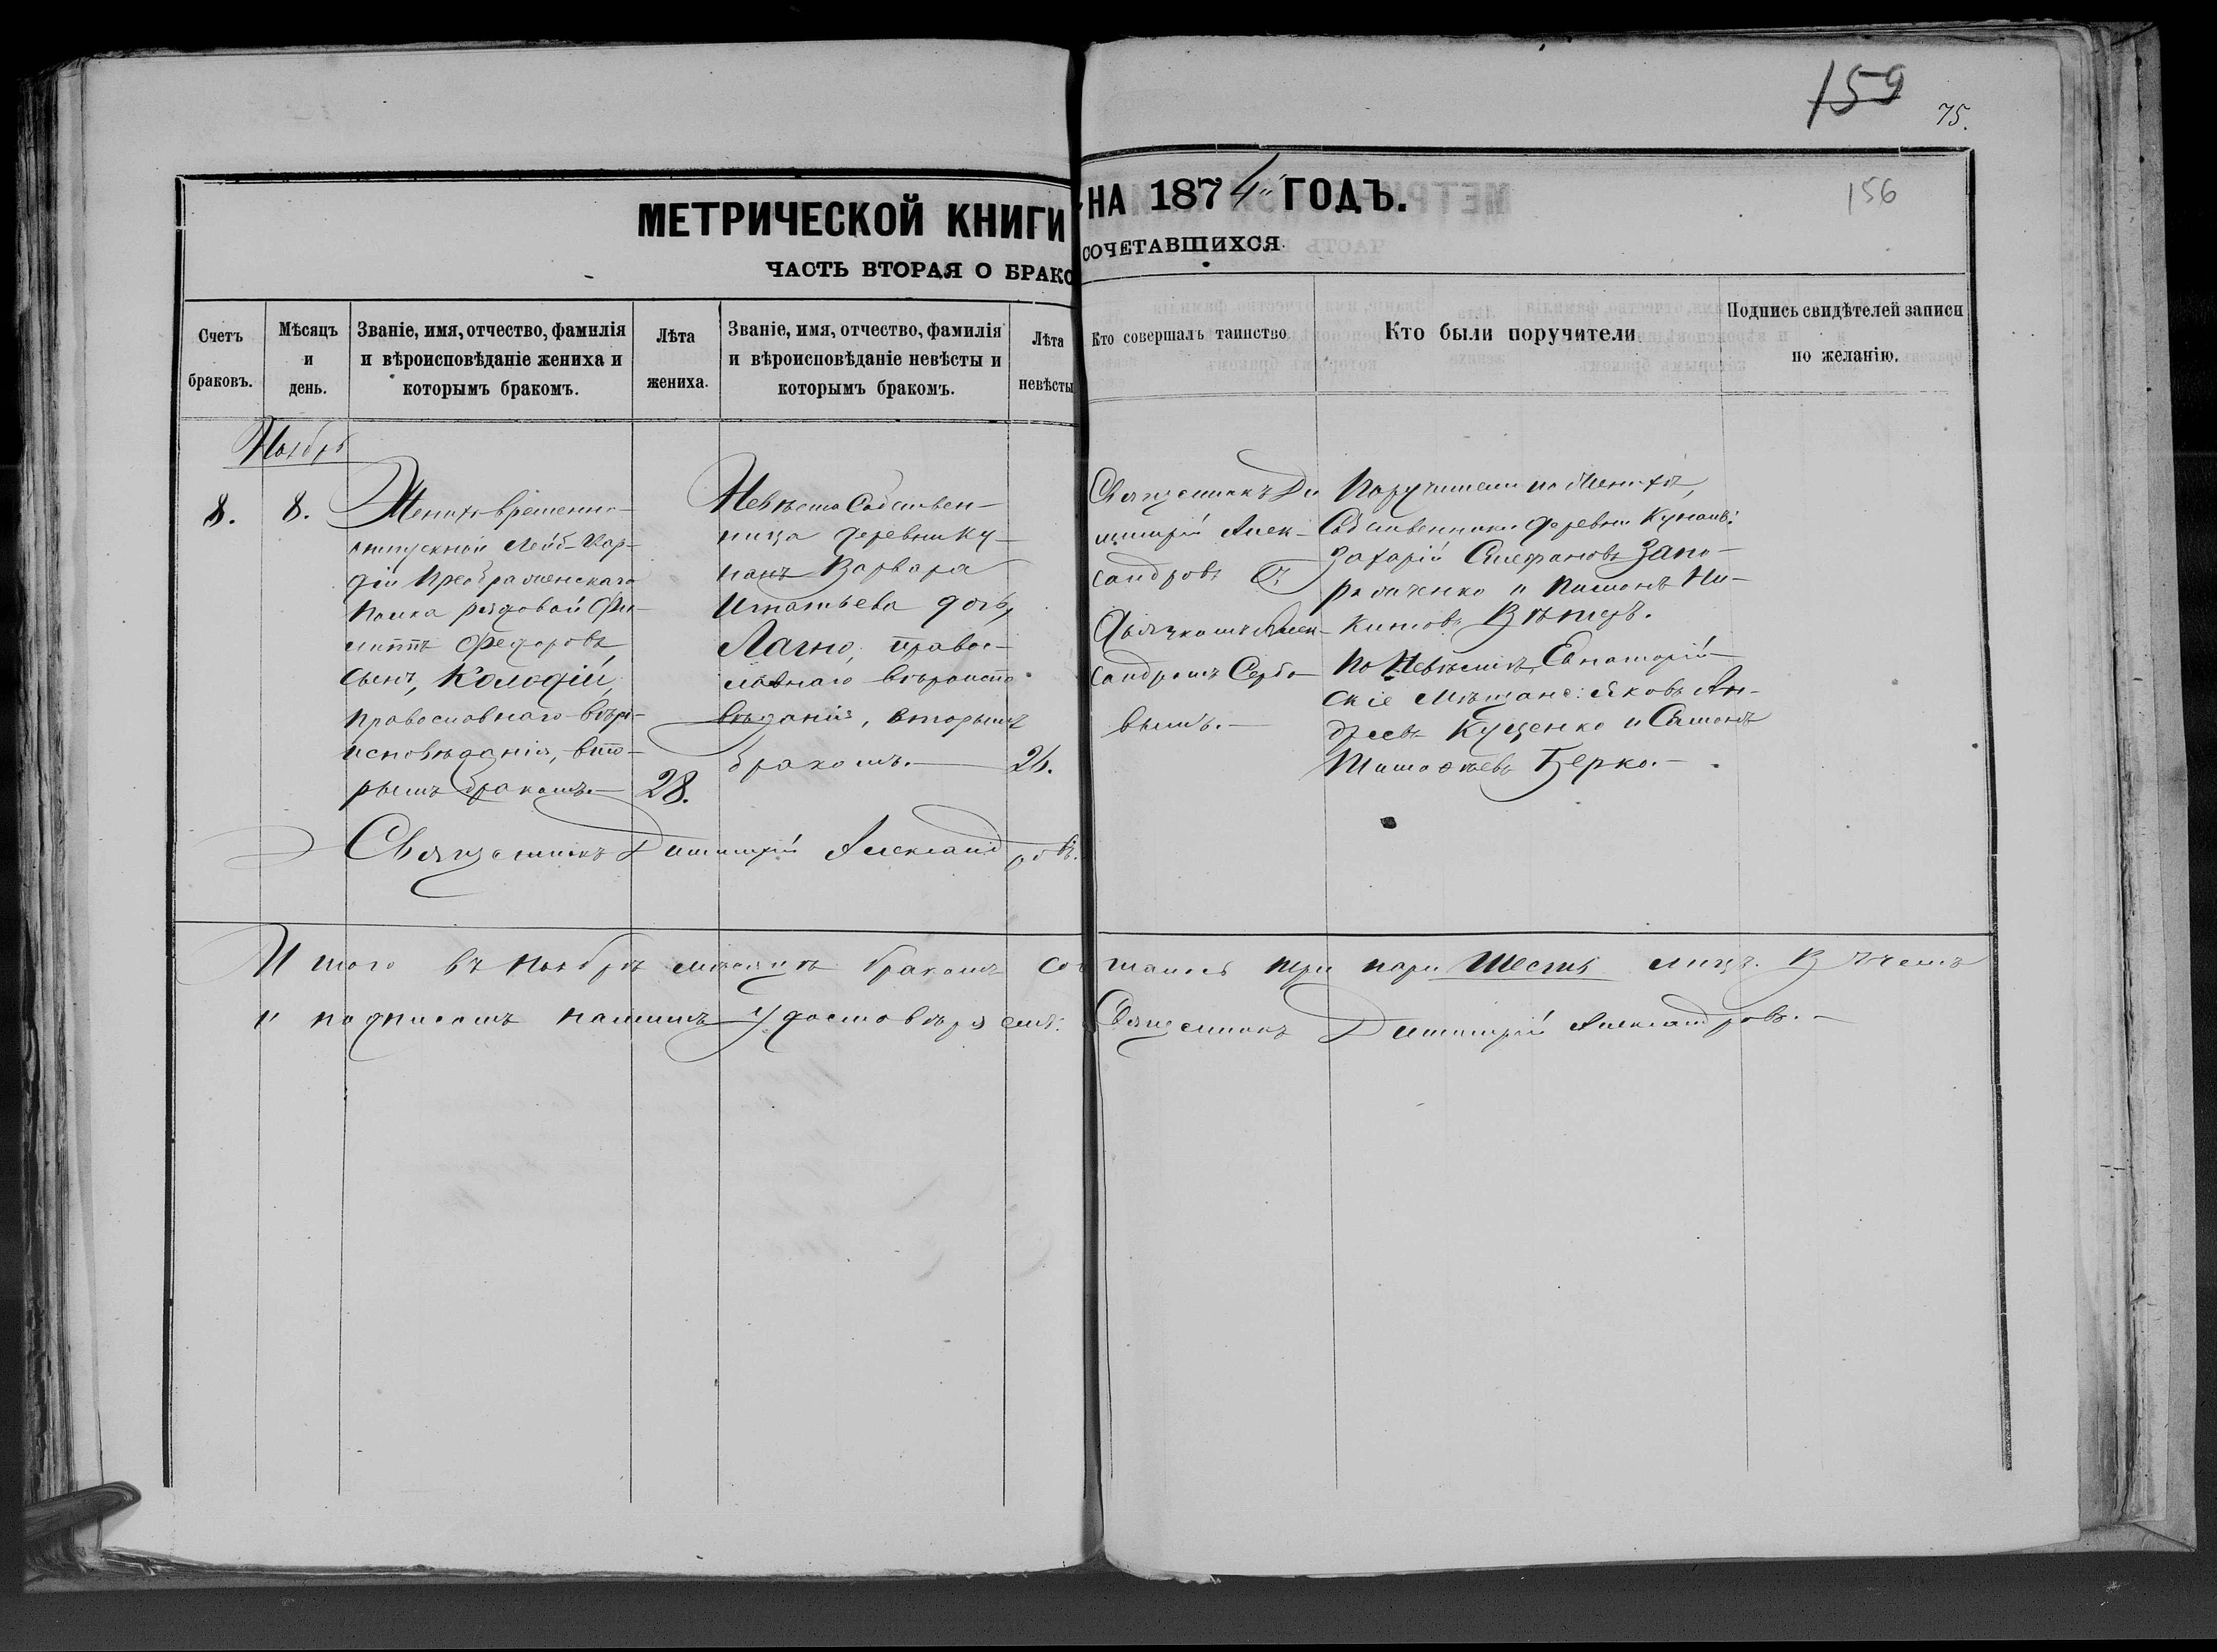 159
75.
156
МЕТРИЧЕСКОЙ КНИГИ НА 1874 ГОДЪ.
ЧАСТЬ ВТОРАЯ О БРАКОСОЧЕТАВШИХСЯ.
Счетъ браковъ.
Мѣсяцъ и день.
Званіе, имя, отчество, фамилія и вѣроисповѣданіе жениха и которымъ бракомъ.
Лѣта жениха.
Званіе, имя, отчество, фамилія и вѣроисповѣданіе невѣсты и которымъ бракомъ.
Лѣта невѣсты
Кто совершалъ таинство
Кто были поручители
Подпись свидѣтелей записи по желанію.
Ноябрь
8.
8.
Женихъ временно-
отпускной Лейб-Гвар-
діи Преображенскаго
Полка рядовой Фи-
липпъ Федоровъ
сынъ, Колодій,
православнаго вѣро-
исповѣданія, вто-
рымъ бракомъ.
28.
Невѣста Собствен-
ница деревни Ку-
нанъ Варвара
Игнатьева дочь,
Лагно, правос-
лавнаго вѣроиспо-
вѣданія, вторымъ
бракомъ.
Священникъ Ди
митрій Алек-
сандровъ съ
Дьячкомъ Алек-
сандромъ Сербо-
вымъ.
Поручители по женихѣ,
Собственники деревни Кунанъ:
Захарій Стефановъ Запо-
рожченко и Пименъ Ни-
китовъ Вѣтеръ.
По Невѣстѣ, Евпаторій-
скіе Мѣщане: Яковъ Ан-
дреевъ Куценко и Симонъ
Тимофѣевъ Берко.
Священникъ Димитрій Александровъ.
Итого въ Ноябрѣ мѣсяцѣ бракомъ сочталось три пары шесть лицъ. В чемъ
и подписомъ нашимъ удостовѣряемъ: Священникъ Димитрій Александровъ.